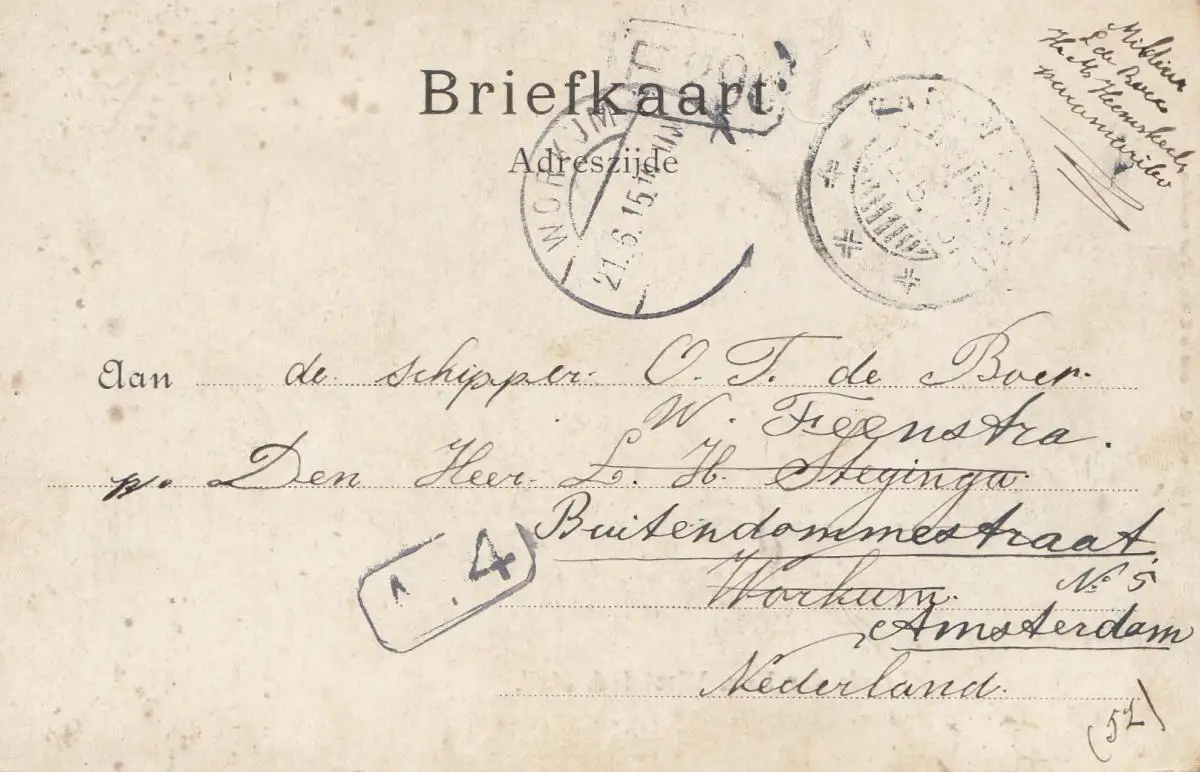 Briefkaart
Adreszijde
WORKUM
21.6.15
de Boer
Hr. M. Heemskerk
paramaribo
Aan de schipper O. T. de Boer.
W. Feenstra.
p. Den Heer L. H. Steginga
Buitendommestraat
Workum. No. 5
Amsterdam
4
Nederland.
(52)